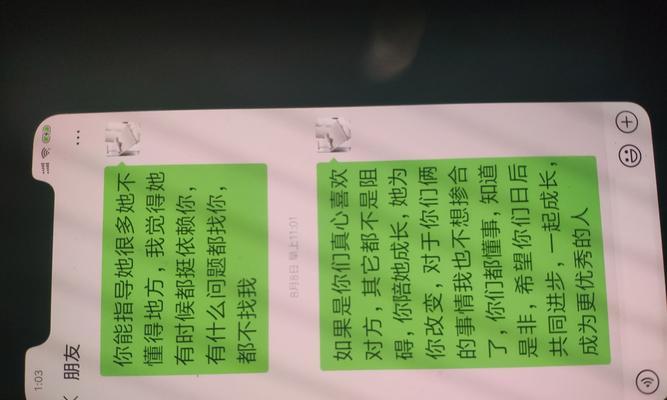 1:03
朋友
你能指导她很多她不
懂得地方，我觉得她
有时候都挺依赖你，
有什么问题都找你，
都不找我
8月8日 早上11:01
如果是你们真心喜欢
对方，其它都不是阻
碍，你陪她成长，她为
你改变，对于你们俩
的事情我也不想掺合
了，你们都懂事，知道
是非，希望你们日后
共同进步，一起成长，
成为更优秀的人